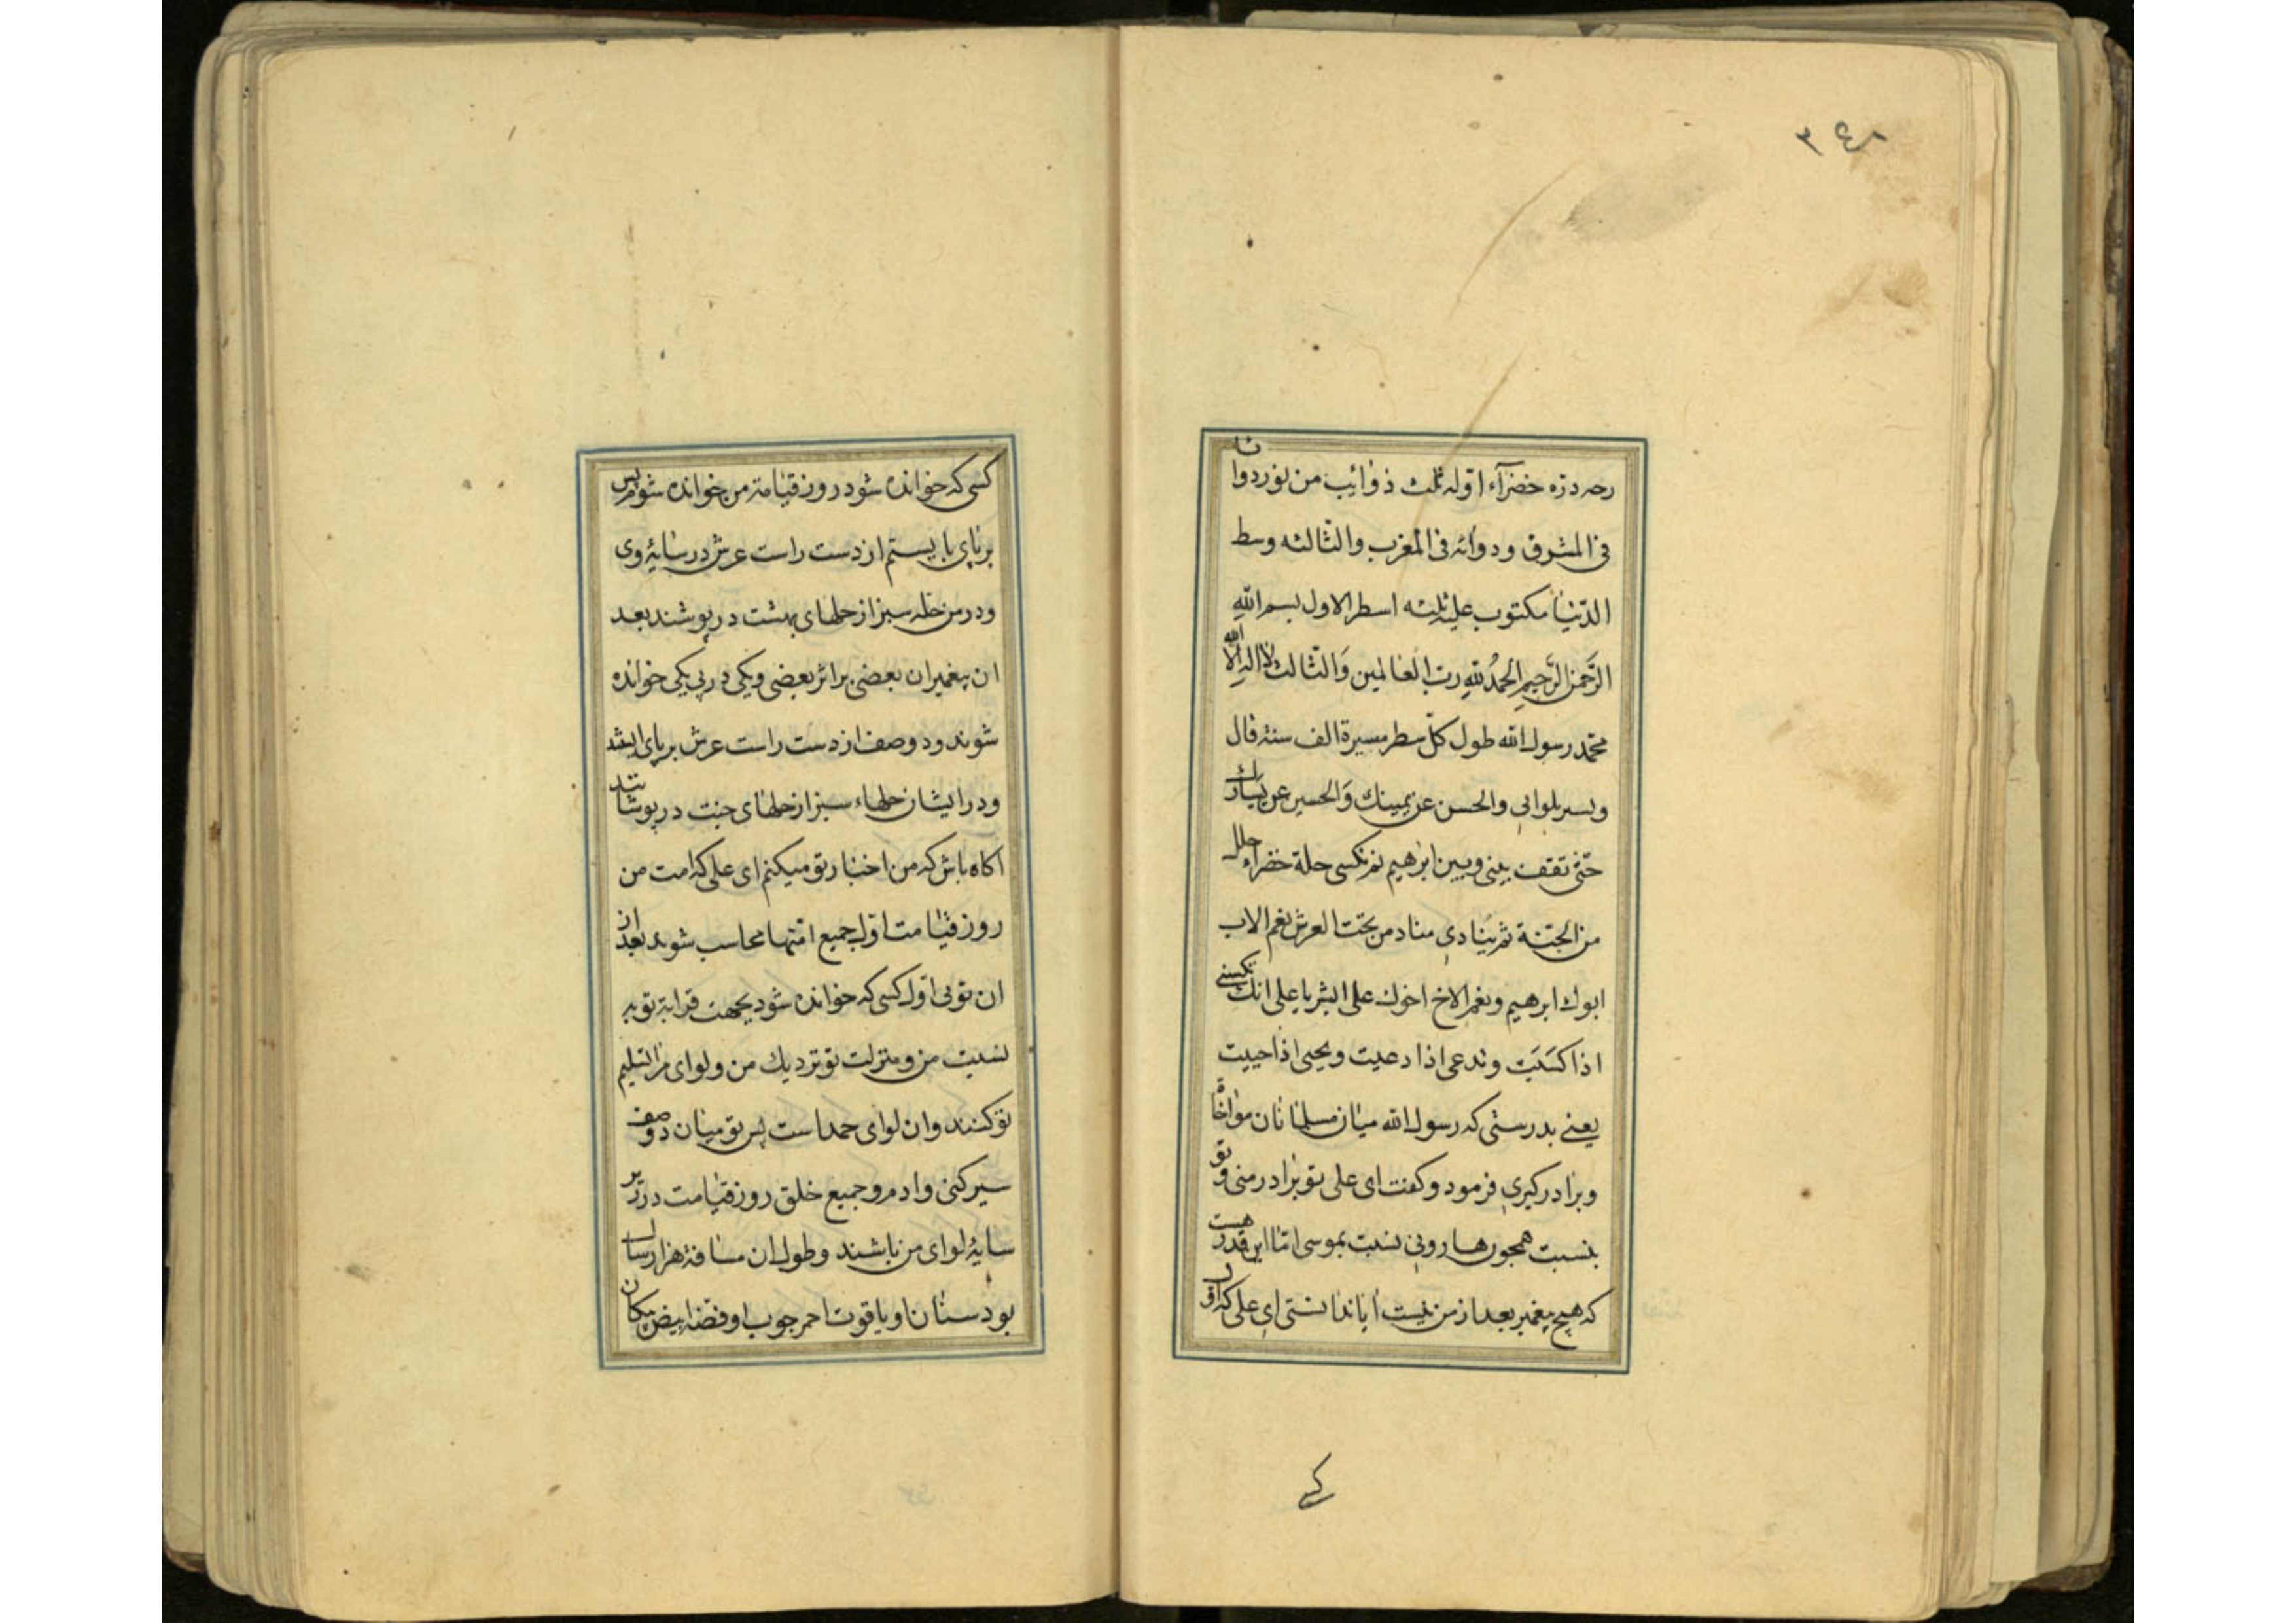 ۳۴۸
رحه دره خضرآء اوله ثلث ذوائب من نور دوا
نا
فی المشرق و دوائه فی المغرب والثالثه وسط
الدنیا مکتوب علیه ثلثه اسطر الاول بسم الله
الرَّحمن الرَّحیمِ الحمدُ للهِ رب العالمین وَالثّالث لا اله الا الله
محمّد رسول الله طول کلّ سطر مسیرة الف سنة قال
و یسیر بلوایی والحسن عن یمینك وَالحسین عن یسارك
حتّی تقف بینی و بین ابرهیم ثم تکسی حلة خضرآء حلل
من الجنّة ثم ینادی مناد من تحت العرش نعم الاب
ابوك ابرهیم و نعم الاخ اخوك علی ابشر یا علی انك تکسی
اذا کسَیَت و تدعی اذا دعیت و یحیی اذا حییت
یعنی بدرستی که رسول الله میان مسلمانان مواخاة
و برادر کیری فرمود و کفت ای علی تو برادر منی و تو
بنسبت همچون هارونی نسبت بموسی امّا این قدر هست
که هیچ پیغمبر بعد از من نیست ایا ندانستی ای علی که اول
کسی
کسی که خوانده شود در روز قیامة من خوانده شوم پس
بر پای بایستم از دست راست عرش در سایهٔ وی
و در من حله سبز از حلهای بهشت در پوشند بعد
ان پیغمبران بعضی بر اثر بعضی و یکی در پی یکی خوانده
شوند و دو صف از دست راست عرش بر پای ایشد
و در ایشان حلهاء سبز از حلهای جنت در پوشانند
اکاه باش که من اخبار تو میکنم ای علی که امت من
روز قیامت اول جمیع امتها محاسب شوند بعد از
ان تویی اول کسی که خوانده شود بجهت قرابة تو به
نسبت من و منزلت تو نزدیك من و لوای مرا تسلیم
تو کنند و ان لوای حمد است پس تو میان دو صف
سیر کنی و ادم و جمیع خلق روز قیامت در زیر
سایهٔ لوای من باشند و طول ان مسافة هزار سال
بود سنان او یاقوت احمر چوب او فضهٔ ابیض پیکان